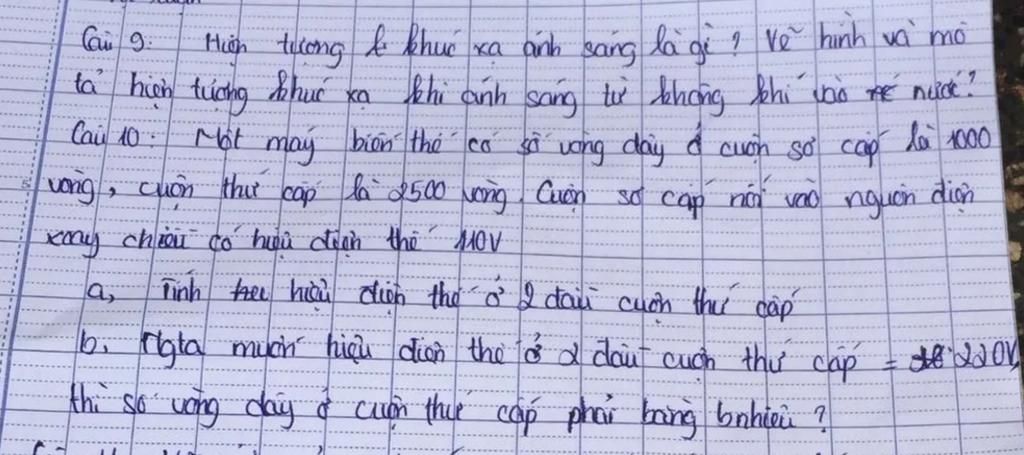 Câu 9: Hiện tượng khúc xạ ánh sáng là gì? Vẽ hình và mô
tả hiện tượng khúc xạ khi ánh sáng từ không khí vào nước?
Câu 10: Một máy biến thế có số vòng dây ở cuộn sơ cấp là 1000
vòng, cuộn thứ cấp là 2500 vòng. Cuộn sơ cấp nối vào nguồn điện
xoay chiều có hiệu điện thế 110V
a, Tính hiệu điện thế ở 2 đầu cuộn thứ cấp
b, Ngta muốn hiệu điện thế ở 2 đầu cuộn thứ cấp = 220V
thì số vòng dây ở cuộn thứ cấp phải bằng bnhiêu?